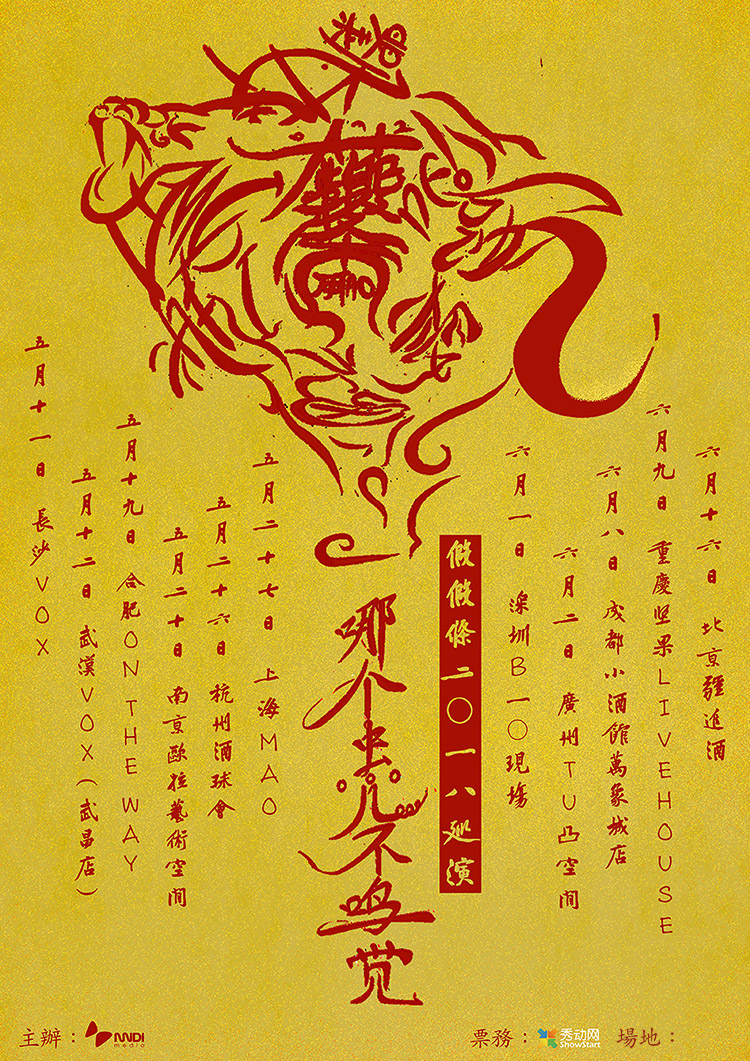 五月十一日 長沙VOX
五月十二日 武漢VOX(武昌店)
五月十九日 合肥ON THE WAY
五月二十日 南京歐拉藝術空間
五月二十六日 杭州酒球會
五月二十七日 上海MAO
哪个虫儿不鸣觉
假假條二〇一八巡演
六月一日 深圳B一〇現場
六月二日 廣州TU凸空間
六月八日 成都小酒館萬象城店
六月九日 重慶坚果LIVEHOUSE
六月十六日 北京疆進酒
主辦：
MIDI
media
票務：
秀动网
ShowStart
場地：